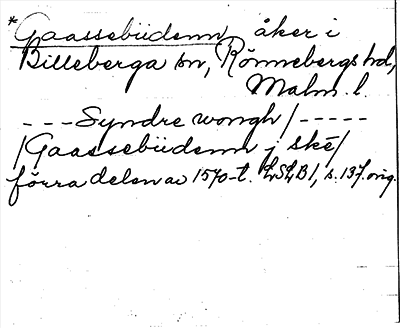 *Gaassebüdenn, åker i
Billeberga sn, Rönnebergs hd,
Malm. l.
---Syndre wongh/-----
/Gaassebüdenn j ske/
förra delen av 1570-t. LSLB1, s. 137. orig.